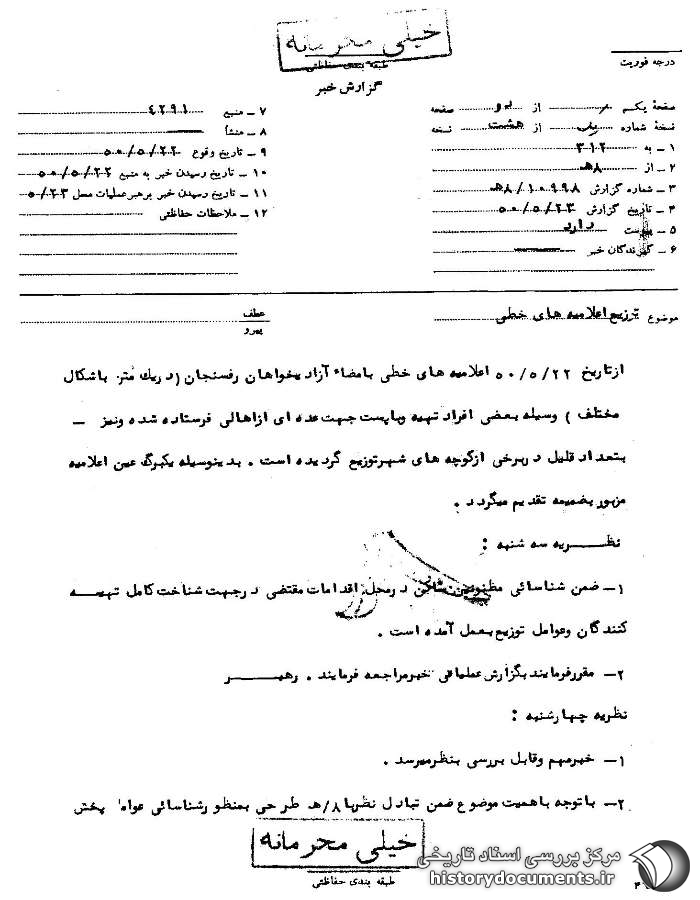 خیلی محرمانه
طبقه بندی حفاظتی
گزارش خبر
درجه فوریت
صفحهٔ یکم از دو صفحه
نسخهٔ شماره یک از هشت نسخه
۱ ـ به ۳۱۲
۲ ـ از ۸هـ
۳ ـ شماره گزارش ۸/۱۰۹۹۸هـ
۴ ـ تاریخ گزارش ۵۰/۵/۲۳
۵ ـ پیوست دارد
۶ ـ گیرندگان خبر
۷ ـ منبع ۴۲۹۱
۸ ـ منشأ
۹ ـ تاریخ وقوع ۵۰/۵/۲۲
۱۰ ـ تاریخ رسیدن خبر به منبع ۵۰/۵/۲۲
۱۱ ـ تاریخ رسیدن خبر برهبر عملیات محل ۵/۲۳
۱۲ ـ ملاحظات حفاظتی
موضوع توزیع اعلامیه های خطی
عطف
پیرو
ازتاریخ ۵۰/۵/۲۲ اعلامیه های خطی بامضاء آزادیخواهان رفسنجان (در یک متن باشکال
مختلف ) وسیله بعضی افراد تهیه وباپست جهت عده ای ازاهالی فرستاده شده ونیز ـ
بتعداد قلیل در برخی ازکوچه های شهرتوزیع گردیده است . بدینوسیله یکبرگ عین اعلامیه
مزبور بضمیمه تقدیم میگردد .
نظـــریه سه شنبه :
۱ـ ضمن شناسائی مظنونین درمحل اقدامات مقتضی درجهت شناخت کامل تهیـــه
کنندگان وعوامل توزیع بعمل آمده است .
۲ـ مقررفرمایند بگزارش عملیاتی خبرمراجعه فرمایند . رهبـــر
نظریه چهارشنبه :
۱ـ خبرمهم وقابل بررسی بنظرمیرسد .
۲ـ باتوجه باهمیت موضوع ضمن تبادل نظربا۸/هـ طرحی بمنظورشناسائی عوامل پخش
خیلی محرمانه
طبقه بندی حفاظتی
مرکز بررسی اسناد تاریخی
historydocuments.ir